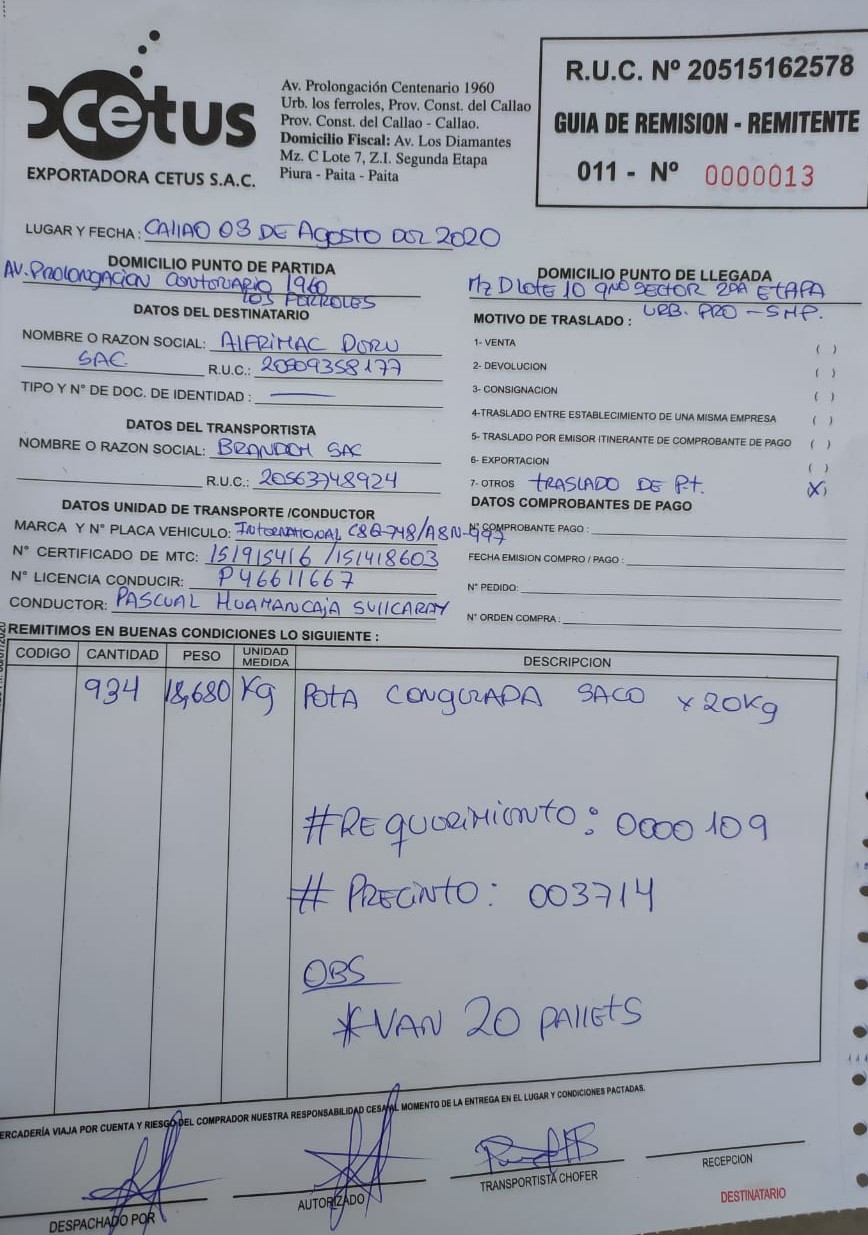 xcetus
EXPORTADORA CETUS S.A.C.
Av. Prolongación Centenario 1960
Urb. los ferroles, Prov. Const. del Callao
Prov. Const. del Callao - Callao.
Domicilio Fiscal: Av. Los Diamantes
Mz. C Lote 7, Z.I. Segunda Etapa
Piura - Paita - Paita
R.U.C. Nº 20515162578
GUIA DE REMISION - REMITENTE
011 - Nº 0000013
LUGAR Y FECHA : Callao 03 DE Agosto DEL 2020
DOMICILIO PUNTO DE PARTIDA
AV. Prolongacion Centenario 1960
los FERROLES
DOMICILIO PUNTO DE LLEGADA
Mz D lote 10 SECTOR 2DA ETAPA
URB. PRO - SMP.
DATOS DEL DESTINATARIO
NOMBRE O RAZON SOCIAL: ALFRIMAC DORU
SAC. R.U.C.: 20509358177
TIPO Y N° DE DOC. DE IDENTIDAD :
MOTIVO DE TRASLADO :
1- VENTA ( )
2- DEVOLUCION ( )
3- CONSIGNACION ( )
4-TRASLADO ENTRE ESTABLECIMIENTO DE UNA MISMA EMPRESA ( )
5- TRASLADO POR EMISOR ITINERANTE DE COMPROBANTE DE PAGO ( )
6- EXPORTACION ( )
7- OTROS TRASLADO DE P.t. (X)
DATOS DEL TRANSPORTISTA
NOMBRE O RAZON SOCIAL: BRANDCH SAC
R.U.C.: 20563748924
DATOS UNIDAD DE TRANSPORTE /CONDUCTOR
MARCA Y N° PLACA VEHICULO: International C8Q-748/A8N-997
N° CERTIFICADO DE MTC: 151915416 /151418603
N° LICENCIA CONDUCIR: P46611667
CONDUCTOR: PASCUAL HUAMANCAJA SULLCARAY
DATOS COMPROBANTES DE PAGO
N° COMPROBANTE PAGO :
FECHA EMISION COMPRO / PAGO :
N° PEDIDO:
N° ORDEN COMPRA :
REMITIMOS EN BUENAS CONDICIONES LO SIGUIENTE :
CODIGO CANTIDAD PESO UNIDAD MEDIDA DESCRIPCION
934 18,680 Kg POTA CONGELADA SACO x 20Kg
#REquerimiento: 0000109
# PRECINTO: 003714
OBS
*VAN 20 PALLETS
ERCADERÍA VIAJA POR CUENTA Y RIESGO DEL COMPRADOR NUESTRA RESPONSABILIDAD CESA AL MOMENTO DE LA ENTREGA EN EL LUGAR Y CONDICIONES PACTADAS.
DESPACHADO POR
AUTORIZADO
TRANSPORTISTA CHOFER
RECEPCION
DESTINATARIO